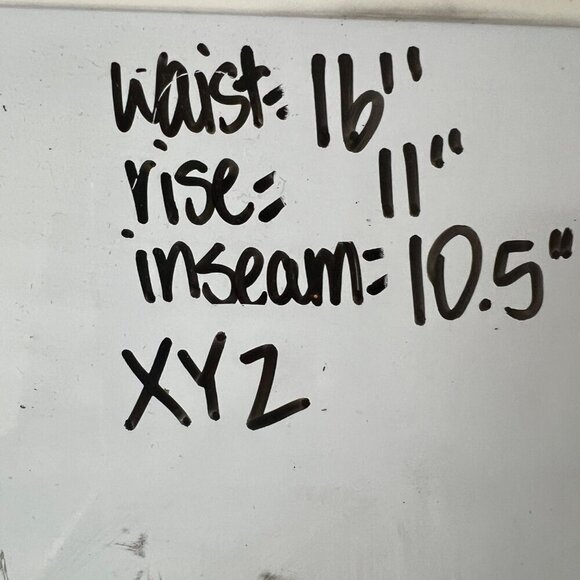 waist= 16"
rise= 11"
inseam= 10.5"
XYZ